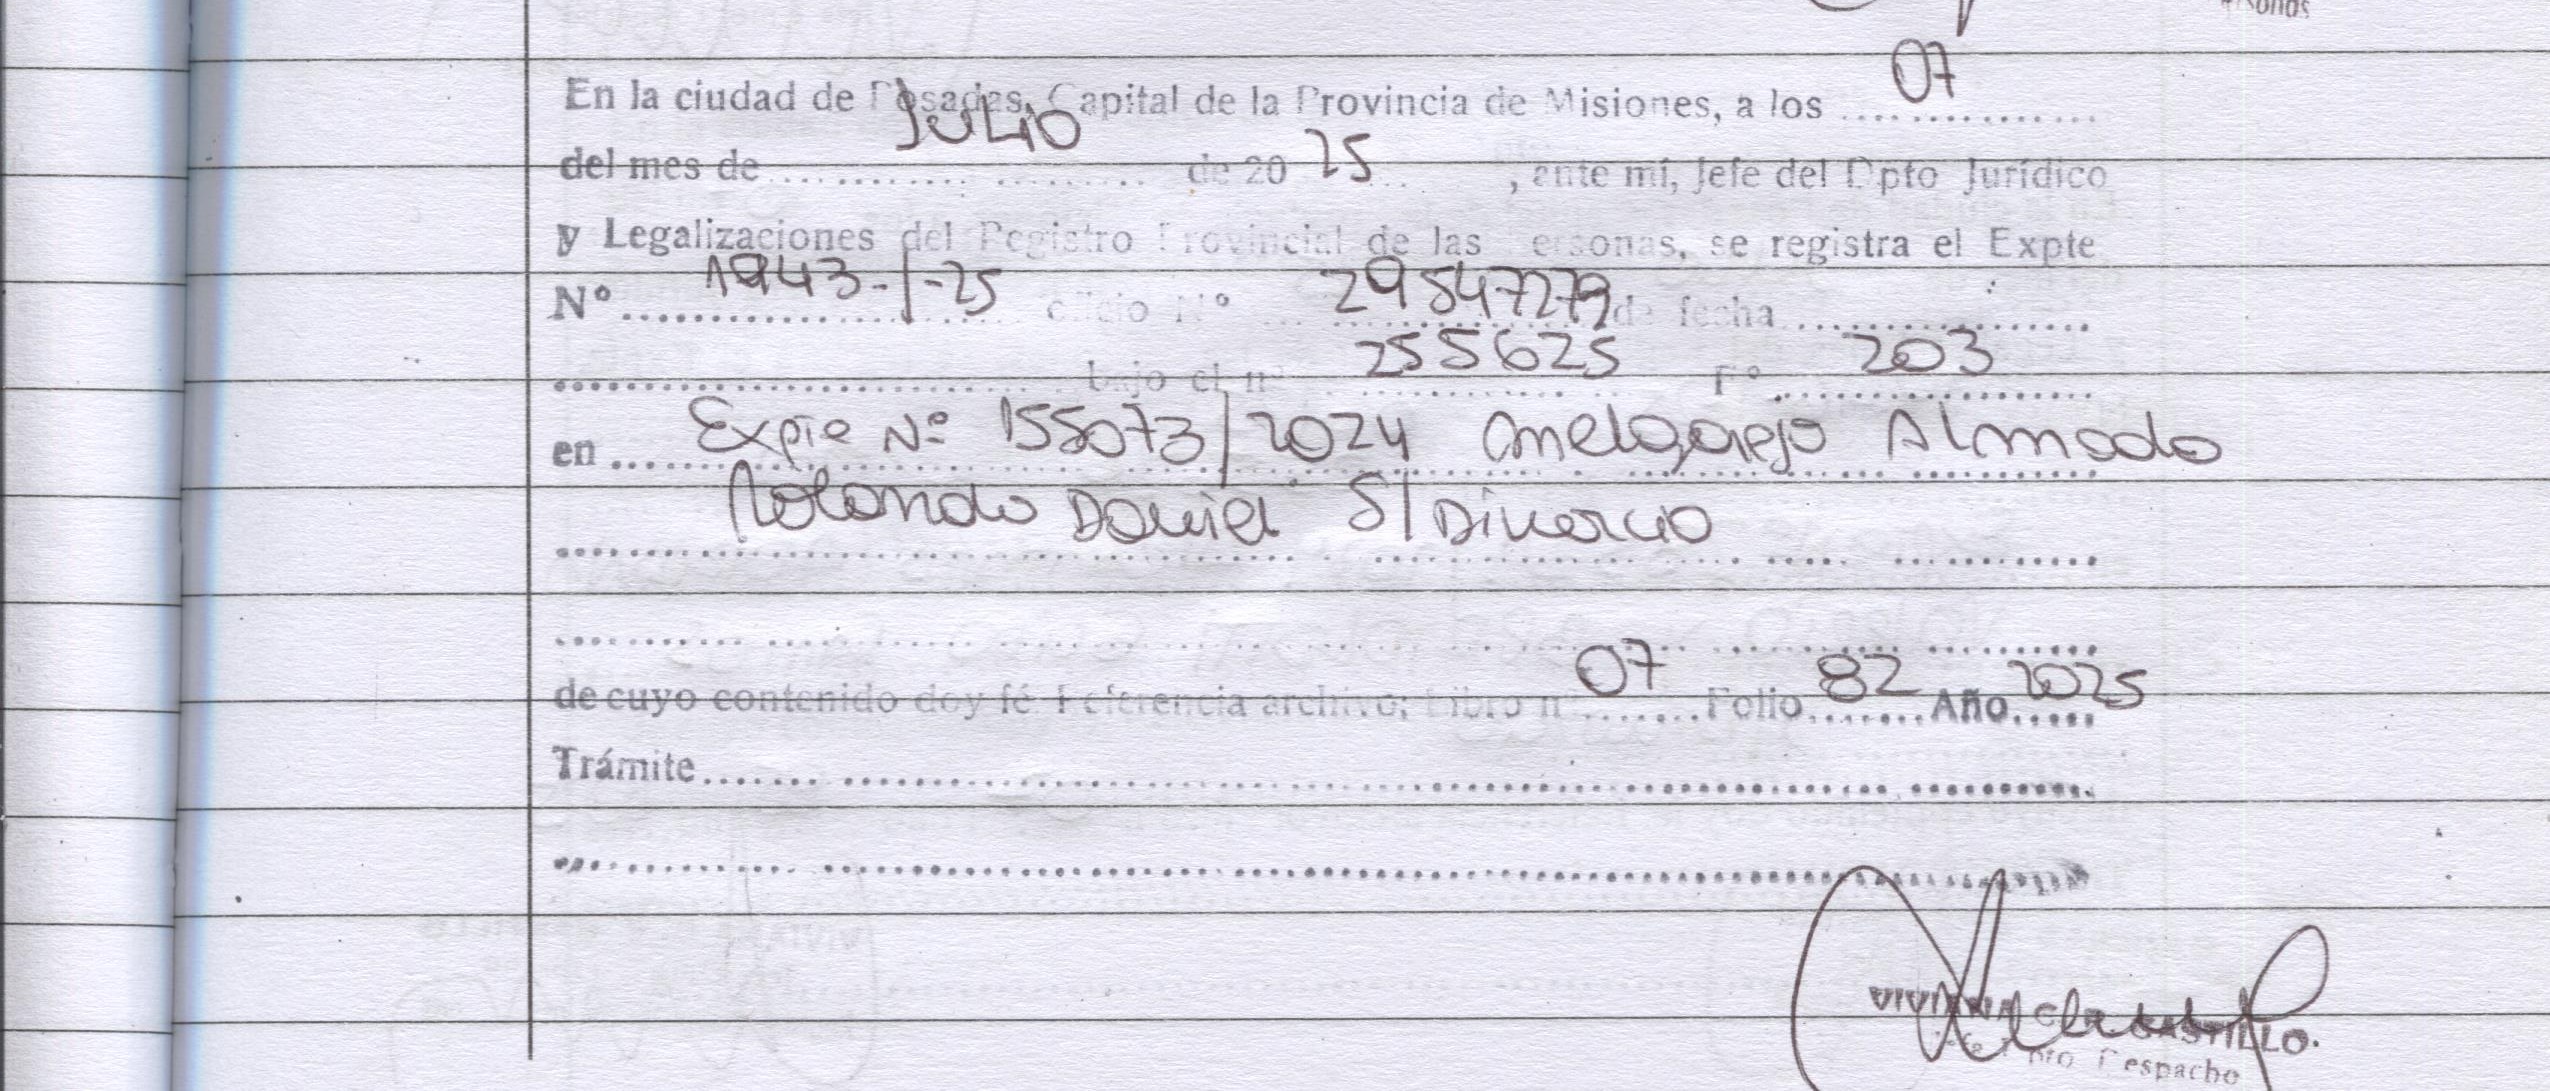 En la ciudad de Posadas, Capital de la Provincia de Misiones, a los 07
del mes de JULIO de 20 25, ante mí, Jefe del Dpto Jurídico
y Legalizaciones del Registro Provincial de las ersonas, se registra el Expte
Nº 1943-/-25 oficio Nº 29547279 de fecha
bajo el nº 255625 Fº 203
en Expte Nº 155073/2024 Melgarejo Almado
Rolando Daniel S/Divorcio
de cuyo contenido doy fé. Referencia archivo: Libro nº 07 Folio 82 Año 2025
Trámite
CASTILLO.
Dpto Despacho